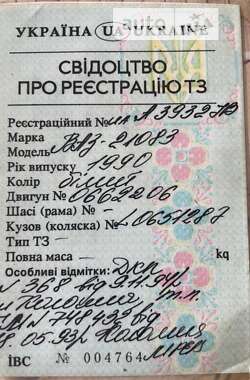 auto
УКРАЇНА UA UKRAINE
СВІДОЦТВО
ПРО РЕЄСТРАЦІЮ ТЗ
Реєстраційний № А 3932
Марка
Модель ВАЗ-21083
Рік випуску 1990
Колір білий
Двигун № 0662206
Шасі (рама) № —
Кузов (коляска) № L0651287
Тип ТЗ —
Повна маса — kg
Особливі відмітки: ДКП
N 368 від
N 748433 від
05.93р Коломия
ІВС № 004764 МРЕВ